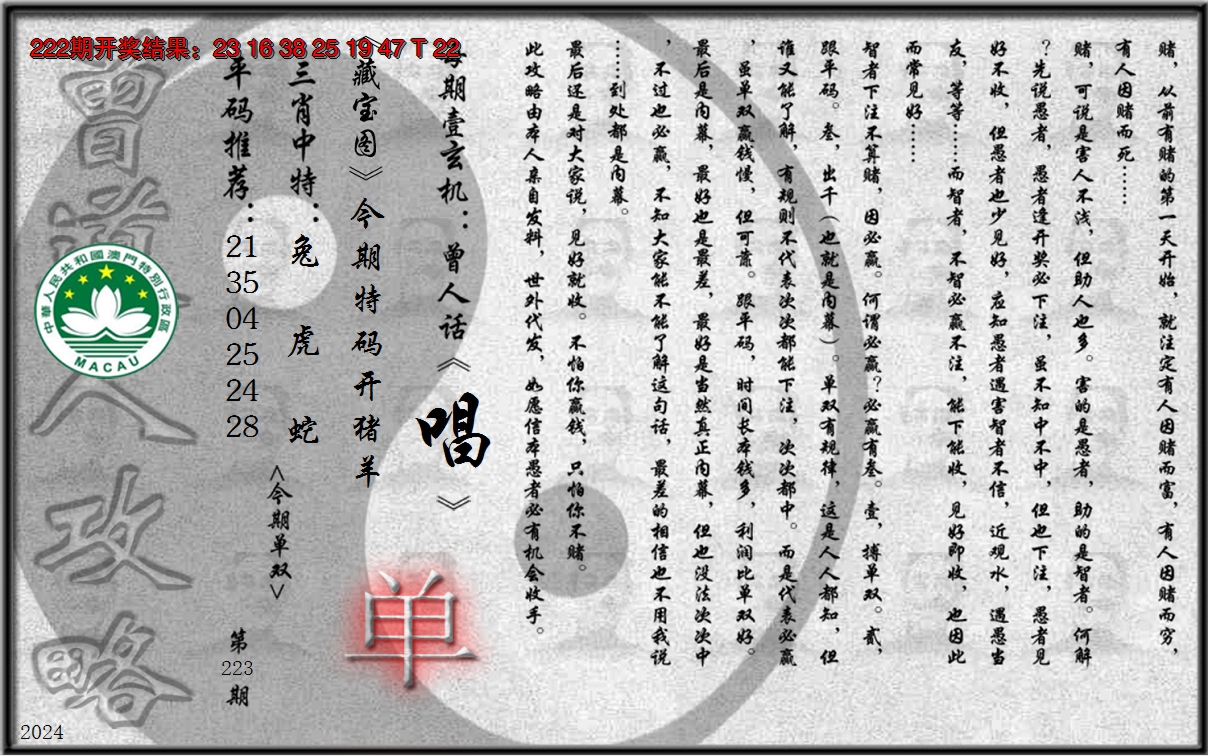 222期开奖结果：23 16 38 25 19 47 T 22
赌，从前有赌的第一天开始，就注定有人因赌而富，有人因赌而穷，
有人因赌而死……
赌，可说是害人不浅，但助人也多。害的是愚者，助的是智者。何解
？先说愚者，愚者逢开奖必下注，虽不知中不中，但也下注，愚者见
好不收，但愚者也少见好，应知愚者遇害智者不信，近观水，遇愚当
友，等等……而智者，不智必赢不注，能下能收，见好即收，也因此
而常见好……
智者下注不算赌，因必赢。何谓必赢？必赢有叁。壹，搏单双。贰，
跟平码。叁，出千（也就是内幕）。单双有规律，这是人人都知，但
谁又能了解，有规则不代表次次都能下注，次次都中。而是代表必赢
，虽单双赢钱慢，但可靠。跟平码，时间长本钱多，利润比单双好。
最后是内幕，最好也是最差，最好是当然真正内幕，但也没法次次中
，不过也必赢，不知大家能不能了解这句话，最差的相信也不用我说
……到处都是内幕。
最后还是对大家说，见好就收。不怕你赢钱，只怕你不赌。
此攻略由本人亲自发料，世外代发，如愿信本愚者必有机会收手。
每期壹玄机：曾人话《唱》
《藏宝图》今期特码开猪羊
三肖中特：兔 虎 蛇
<今期单双>
单
平码推荐：
21
35
04
25
24
28
第
223
期
曾道人攻略
中華人民共和國澳門特別行政區
MACAU
2024